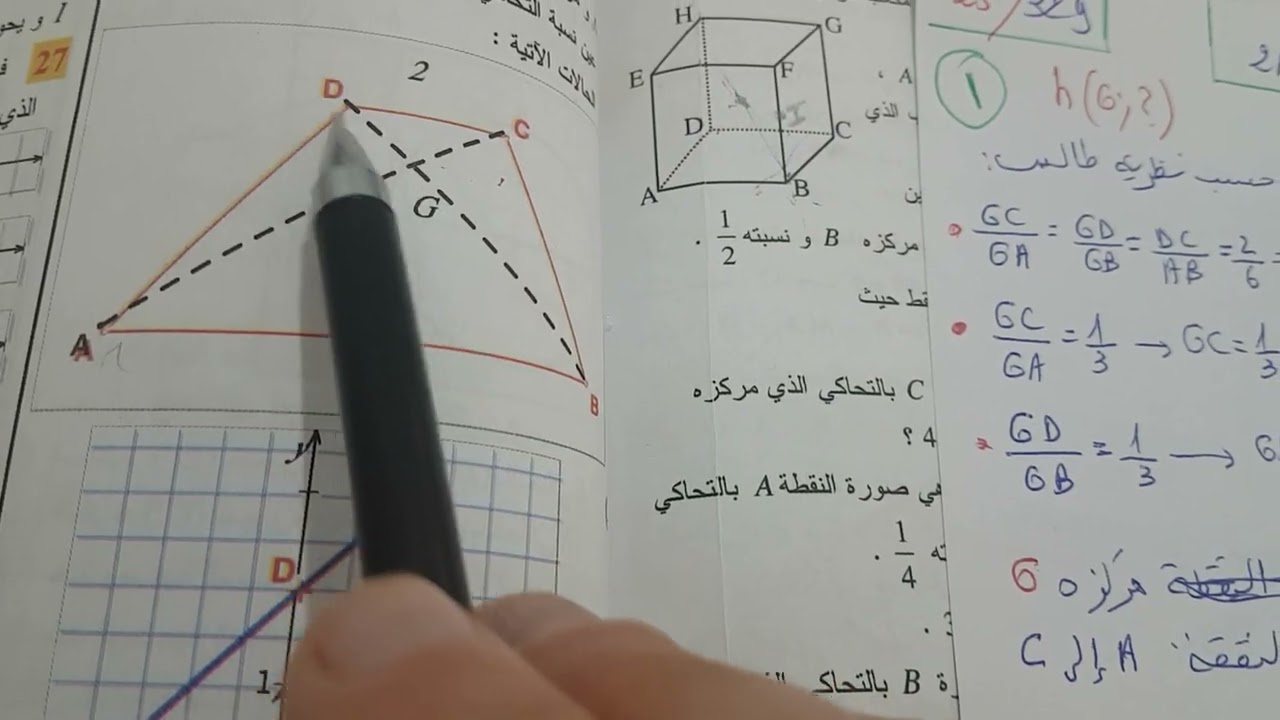 27
الذي
الحالات الآتية :
2
D
C
G
A
B
y
D
1
H
G
E
F
D
C
A
B
A ،
الذي
مركزه B و نسبته 1/2 .
حيث
C بالتحاكي الذي مركزه
4 ؟
هي صورة النقطة A بالتحاكي
1/4 .
B بالتحاكي
1
h(G;?)
حسب نظرية طالس:
GC/GA = GD/GB = DC/AB = 2/6 =
GC/GA = 1/3 → GC = 1/3
GD/GB = 1/3 → G
مركزه G
النقطة A إلى C